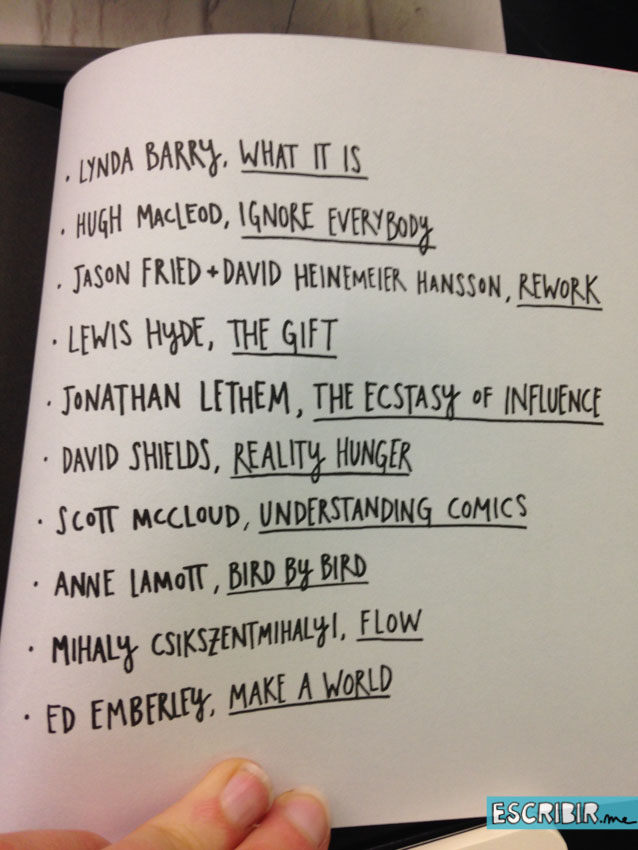 · LYNDA BARRY, WHAT IT IS
· HUGH MACLEOD, IGNORE EVERYBODY
· JASON FRIED + DAVID HEINEMEIER HANSSON, REWORK
· LEWIS HYDE, THE GIFT
· JONATHAN LETHEM, THE ECSTASY OF INFLUENCE
· DAVID SHIELDS, REALITY HUNGER
· SCOTT MCCLOUD, UNDERSTANDING COMICS
· ANNE LAMOTT, BIRD BY BIRD
· MIHALY CSIKSZENTMIHALYI, FLOW
· ED EMBERLEY, MAKE A WORLD
ESCRIBIR.me